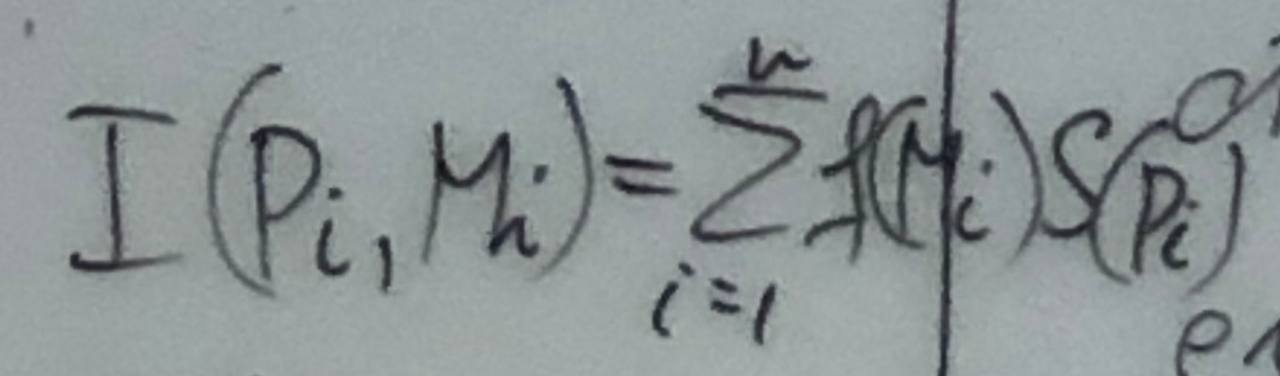 I(Pᵢ, Mᵢ) = ∑ᵢ₌₁ⁿ f(Mᵢ) S(Pᵢ)